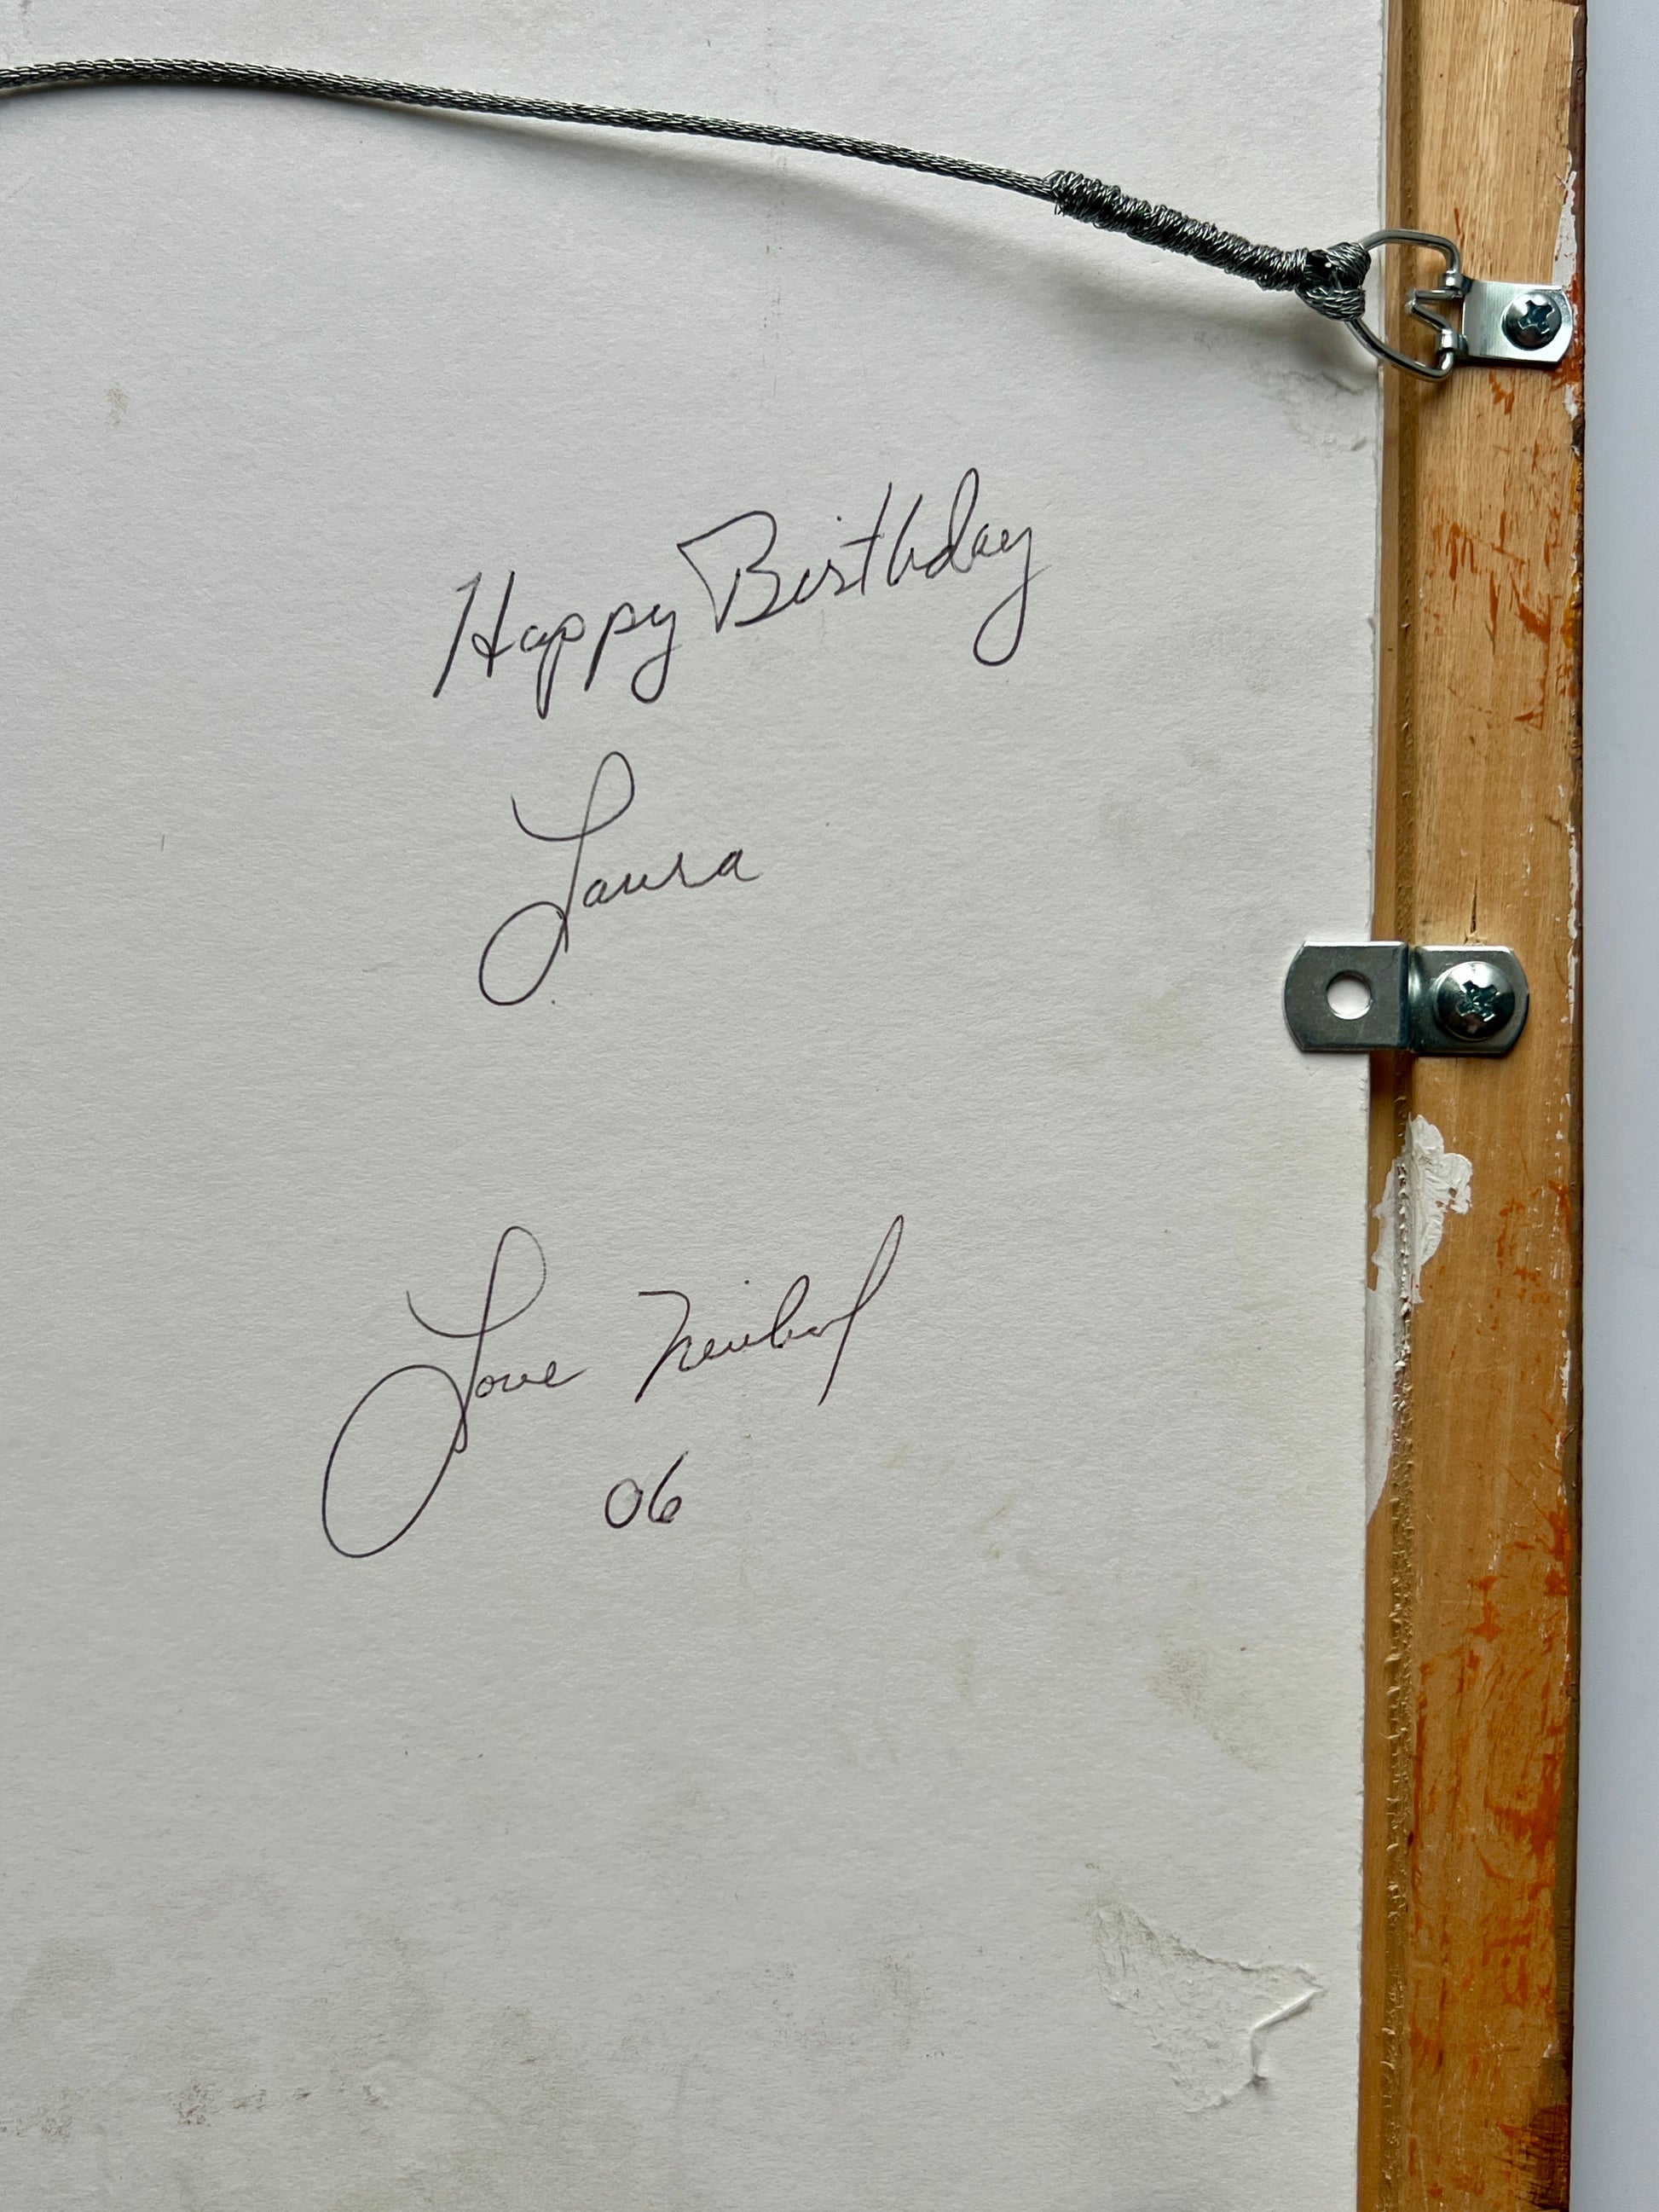 Happy Birthday
Laura
Love
06